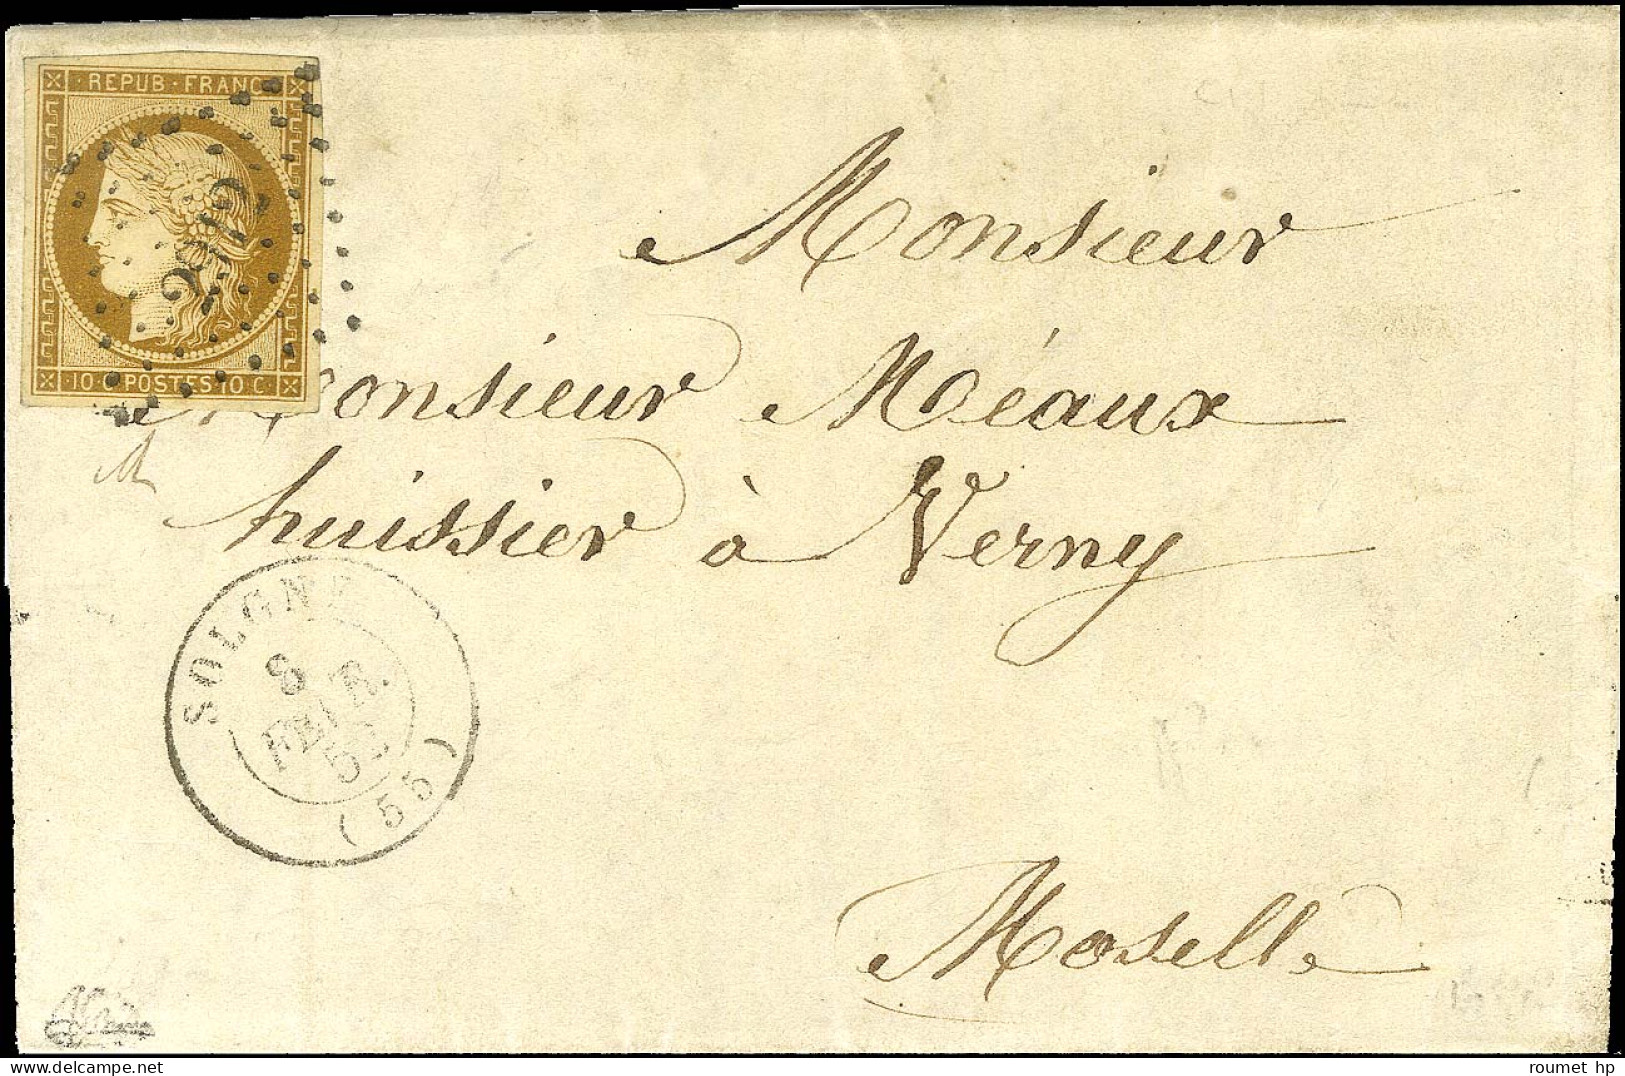 REPUB · FRANC
10 C POSTES 10 C
2975
Monsieur
Monsieur Méaux
huissier à Verny
SOLGNE
8
FEVR.
53
(55)
Moselle
roumet hp